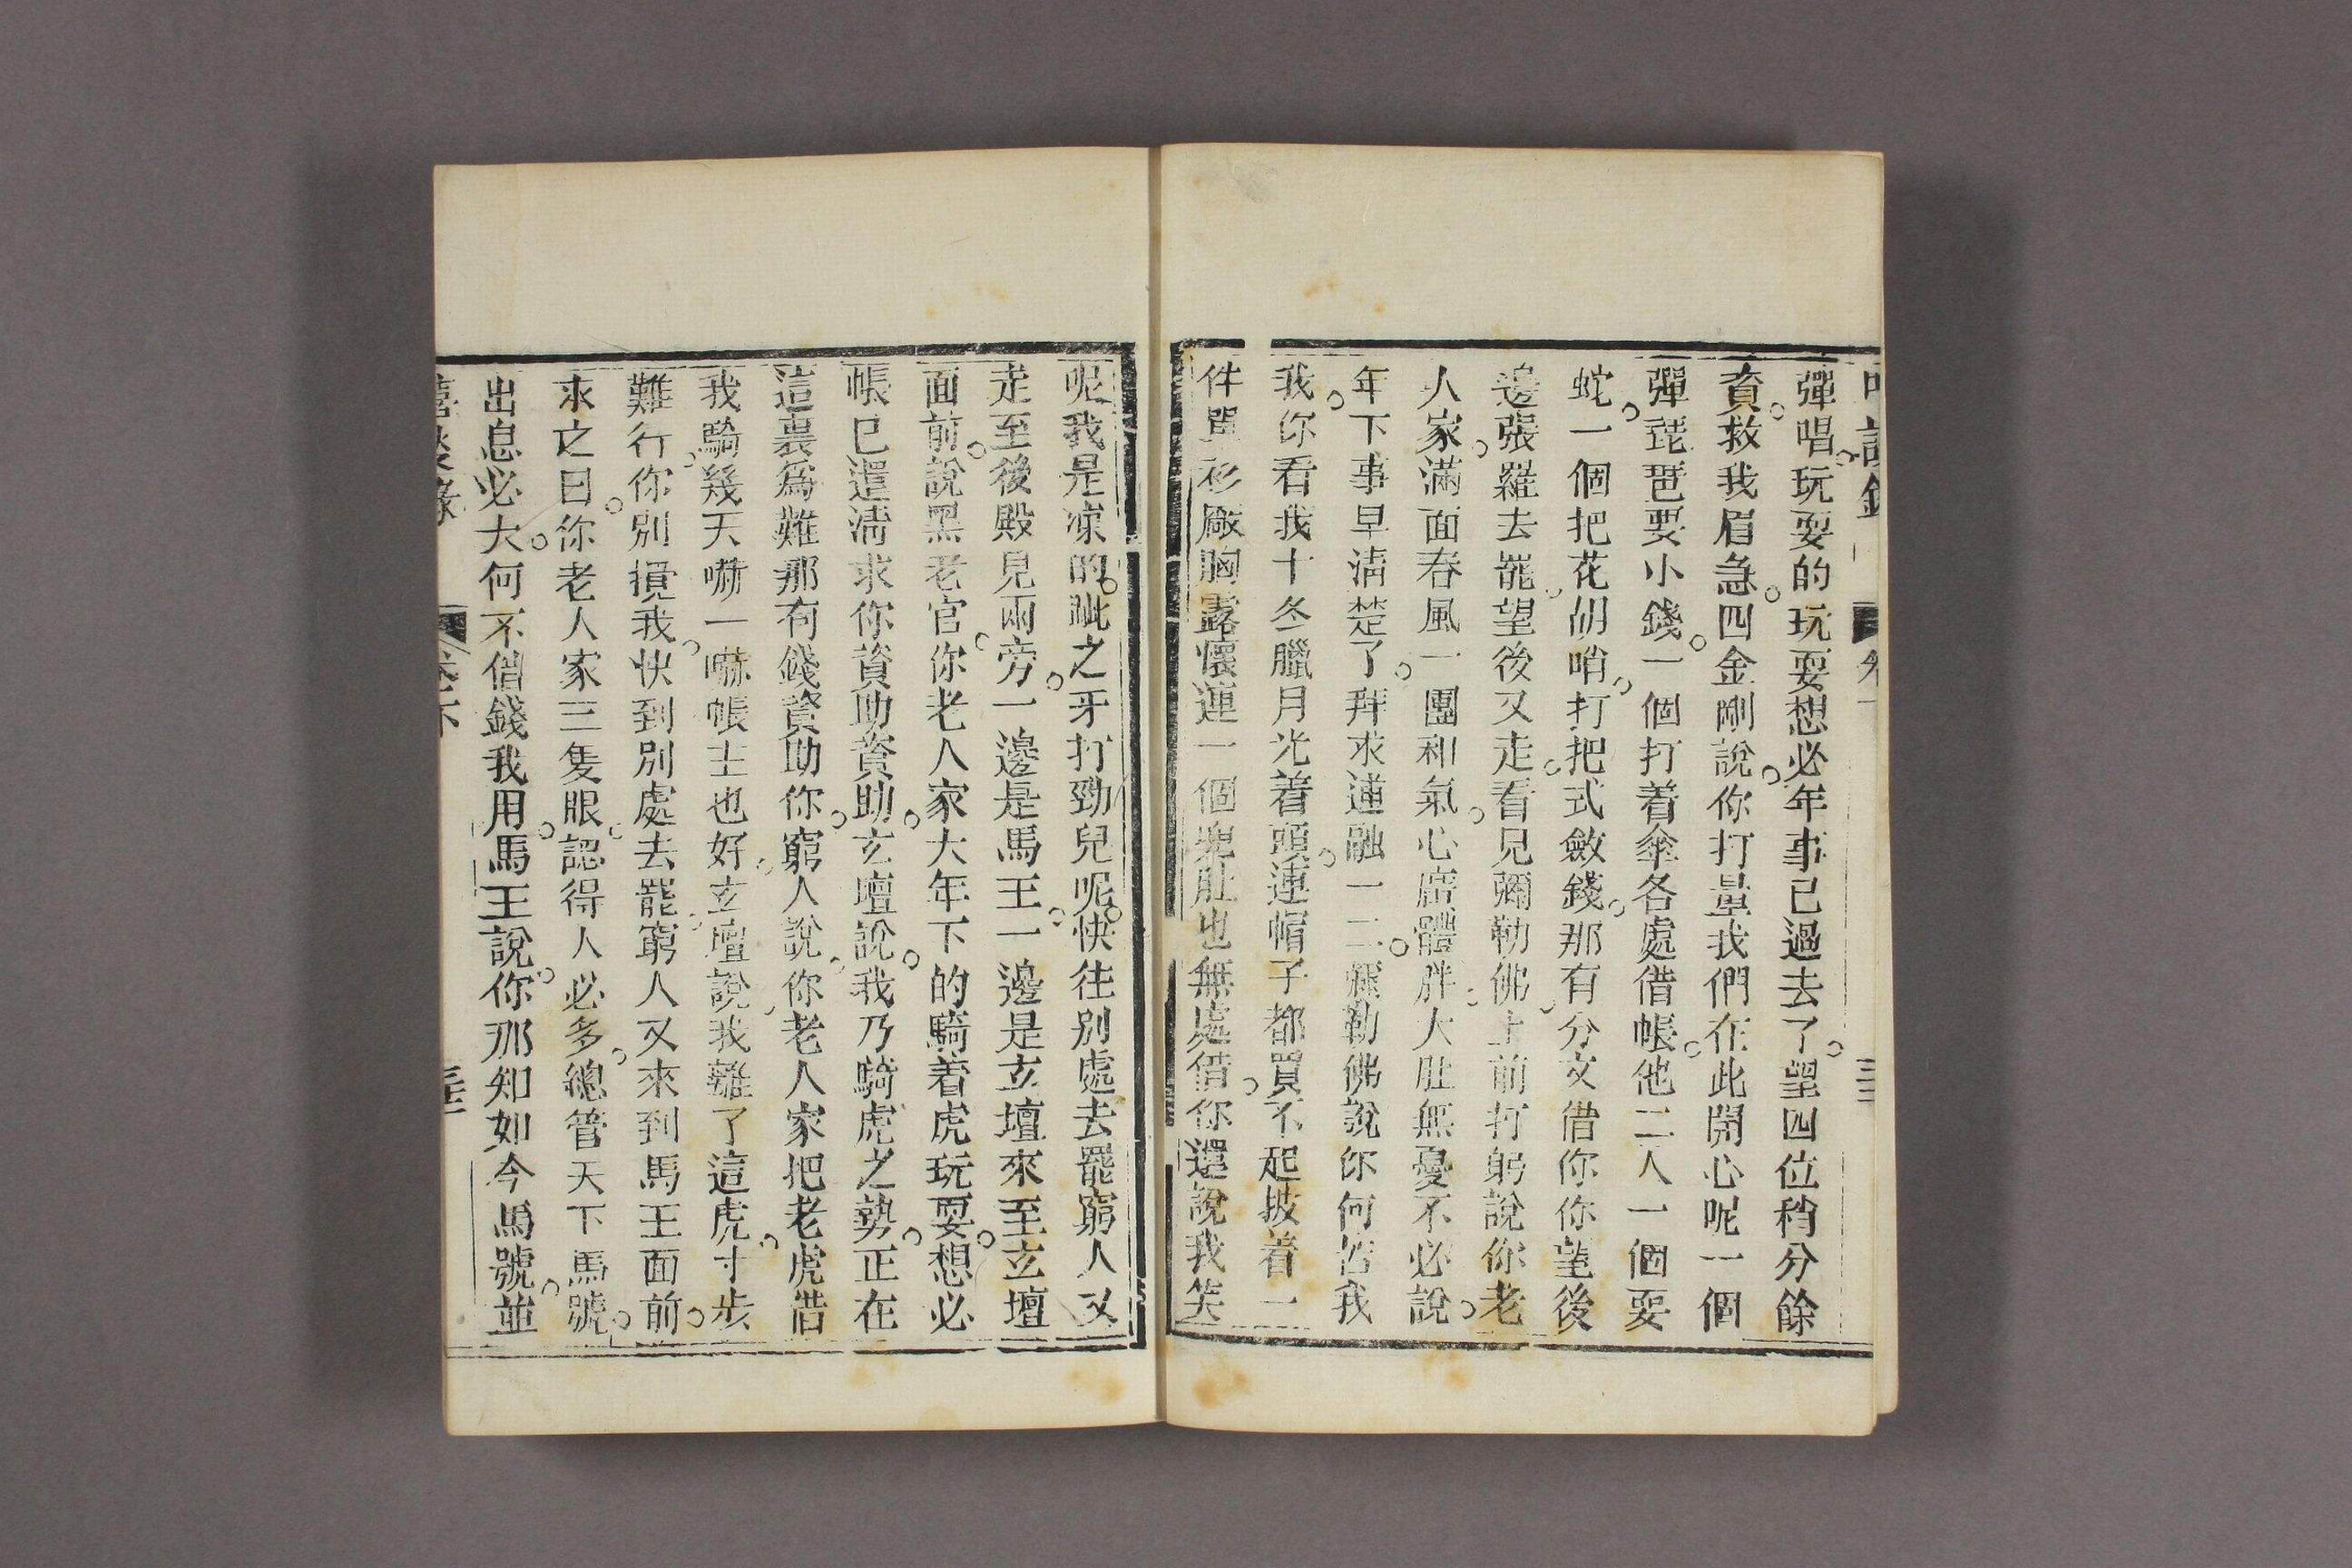 彈唱玩耍的玩耍想必年事已過去了望四位稍分餘
資救我眉急四金剛說你打量我們在此開心呢一個
彈琵琶要小錢一個打着傘各處借帳他二人一個耍
蛇一個把花胡哨打把式斂錢那有分文借你你望後
邊張羅去罷望後又走看見彌勒佛上前打躬說你老
人家滿面春風一團和氣心廣體胖大肚無憂不必說
年下事早清楚了拜求通融一二彌勒佛說你何苦我
我你看我十冬臘月光着頭連帽子都買不起披着一
件單衫廠胸露懷連一個兜肚也無處借你還說我笑
呢我是凍的呲之牙打勁兒呢快往別處去罷窮人又
走至後殿見兩旁一邊是馬王一邊是玄壇來至玄壇
面前說黑老官你老人家大年下的騎着虎玩耍想必
帳已還清求你資助資助玄壇說我乃騎虎之勢正在
這裏爲難那有錢資助你窮人說你老人家把老虎借
我騎幾天嚇一嚇帳主也好玄壇說我離了這虎寸步
難行你別攪我快到別處去罷窮人又來到馬王面前
求之曰你老人家三隻眼認得人必多總管天下馬號
出息必大何不借錢我用馬王說你那知如今馬號並
卷下